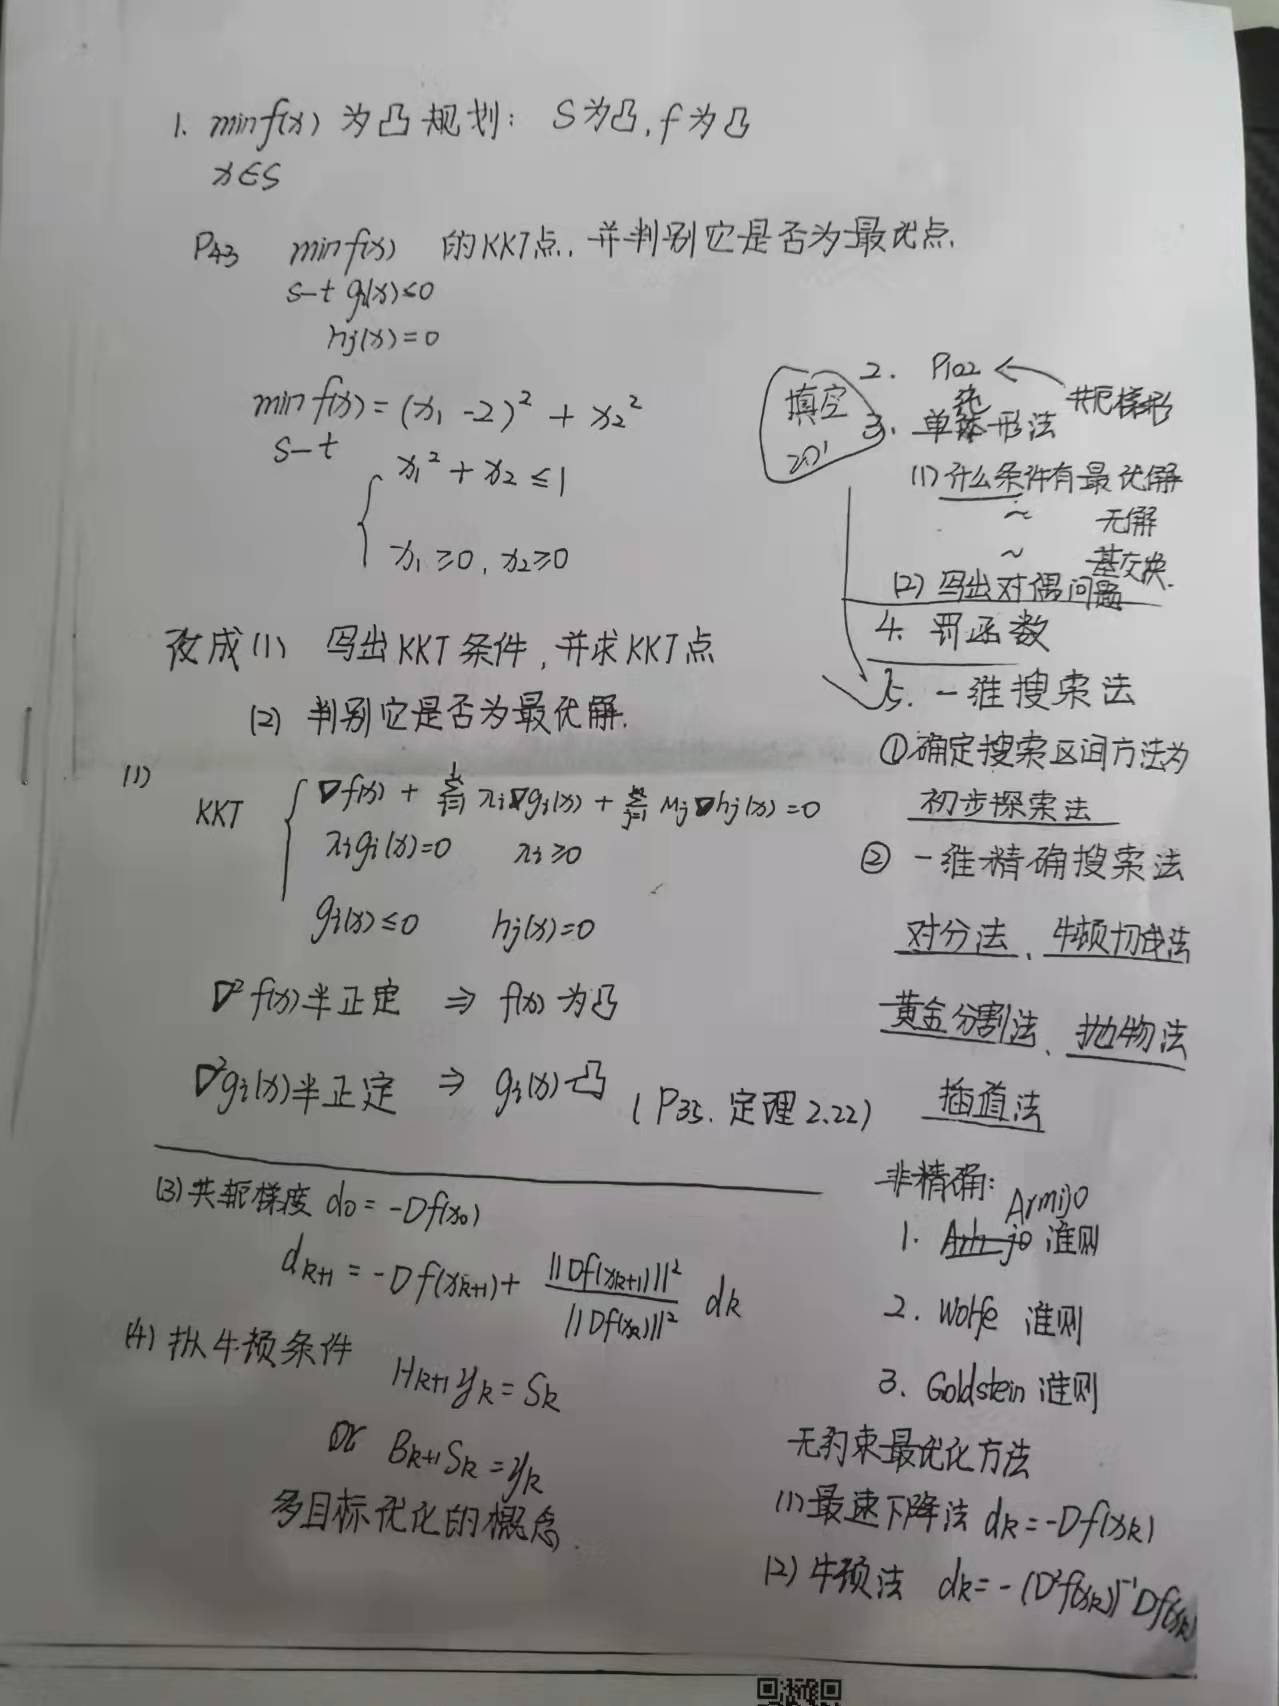 1. min f(x) 为凸规划: S为凸, f为凸
x∈S
P43 min f(x) 的KKT点, 并判别它是否为最优点.
s-t gi(x)≤0
hj(x)=0
min f(x) = (x₁ -2)² + x₂²
s-t
x₁² + x₂ ≤ 1
x₁ ≥0, x₂≥0
改成(1) 写出KKT条件, 并求KKT点
(2) 判别它是否为最优解.
(1)
KKT
∇f(x) + Σ λi∇gi(x) + Σ Mj∇hj(x) = 0
λigi(x)=0 λi≥0
gi(x)≤0 hj(x)=0
∇²f(x)半正定 ⇒ f(x)为凸
∇²gi(x)半正定 ⇒ gi(x)凸 (P35. 定理2.22)
(3) 共轭梯度 d₀ = -Df(x₀)
dk+1 = -Df(xk+1) + ||Df(xk+1)||² / ||Df(xk)||² dk
(4) 拟牛顿条件
Hk+1 yk = Sk
or Bk+1 Sk = yk
多目标优化的概念.
填空
20'
2. P102 ←
3. 单纯形法
(1) 什么条件有最优解
~ 无解
~ 基交换.
(2) 写出对偶问题
4. 罚函数
5. 一维搜索法
①确定搜索区间方法为
初步探索法
② 一维精确搜索法
对分法、牛顿切线法
黄金分割法、抛物法
插值法
非精确:
1. Armijo 准则
2. Wolfe 准则
3. Goldstein 准则
无约束最优化方法
(1) 最速下降法 dk = -Df(xk)
(2) 牛顿法 dk = -(D²f(xk))⁻¹Df(xk)